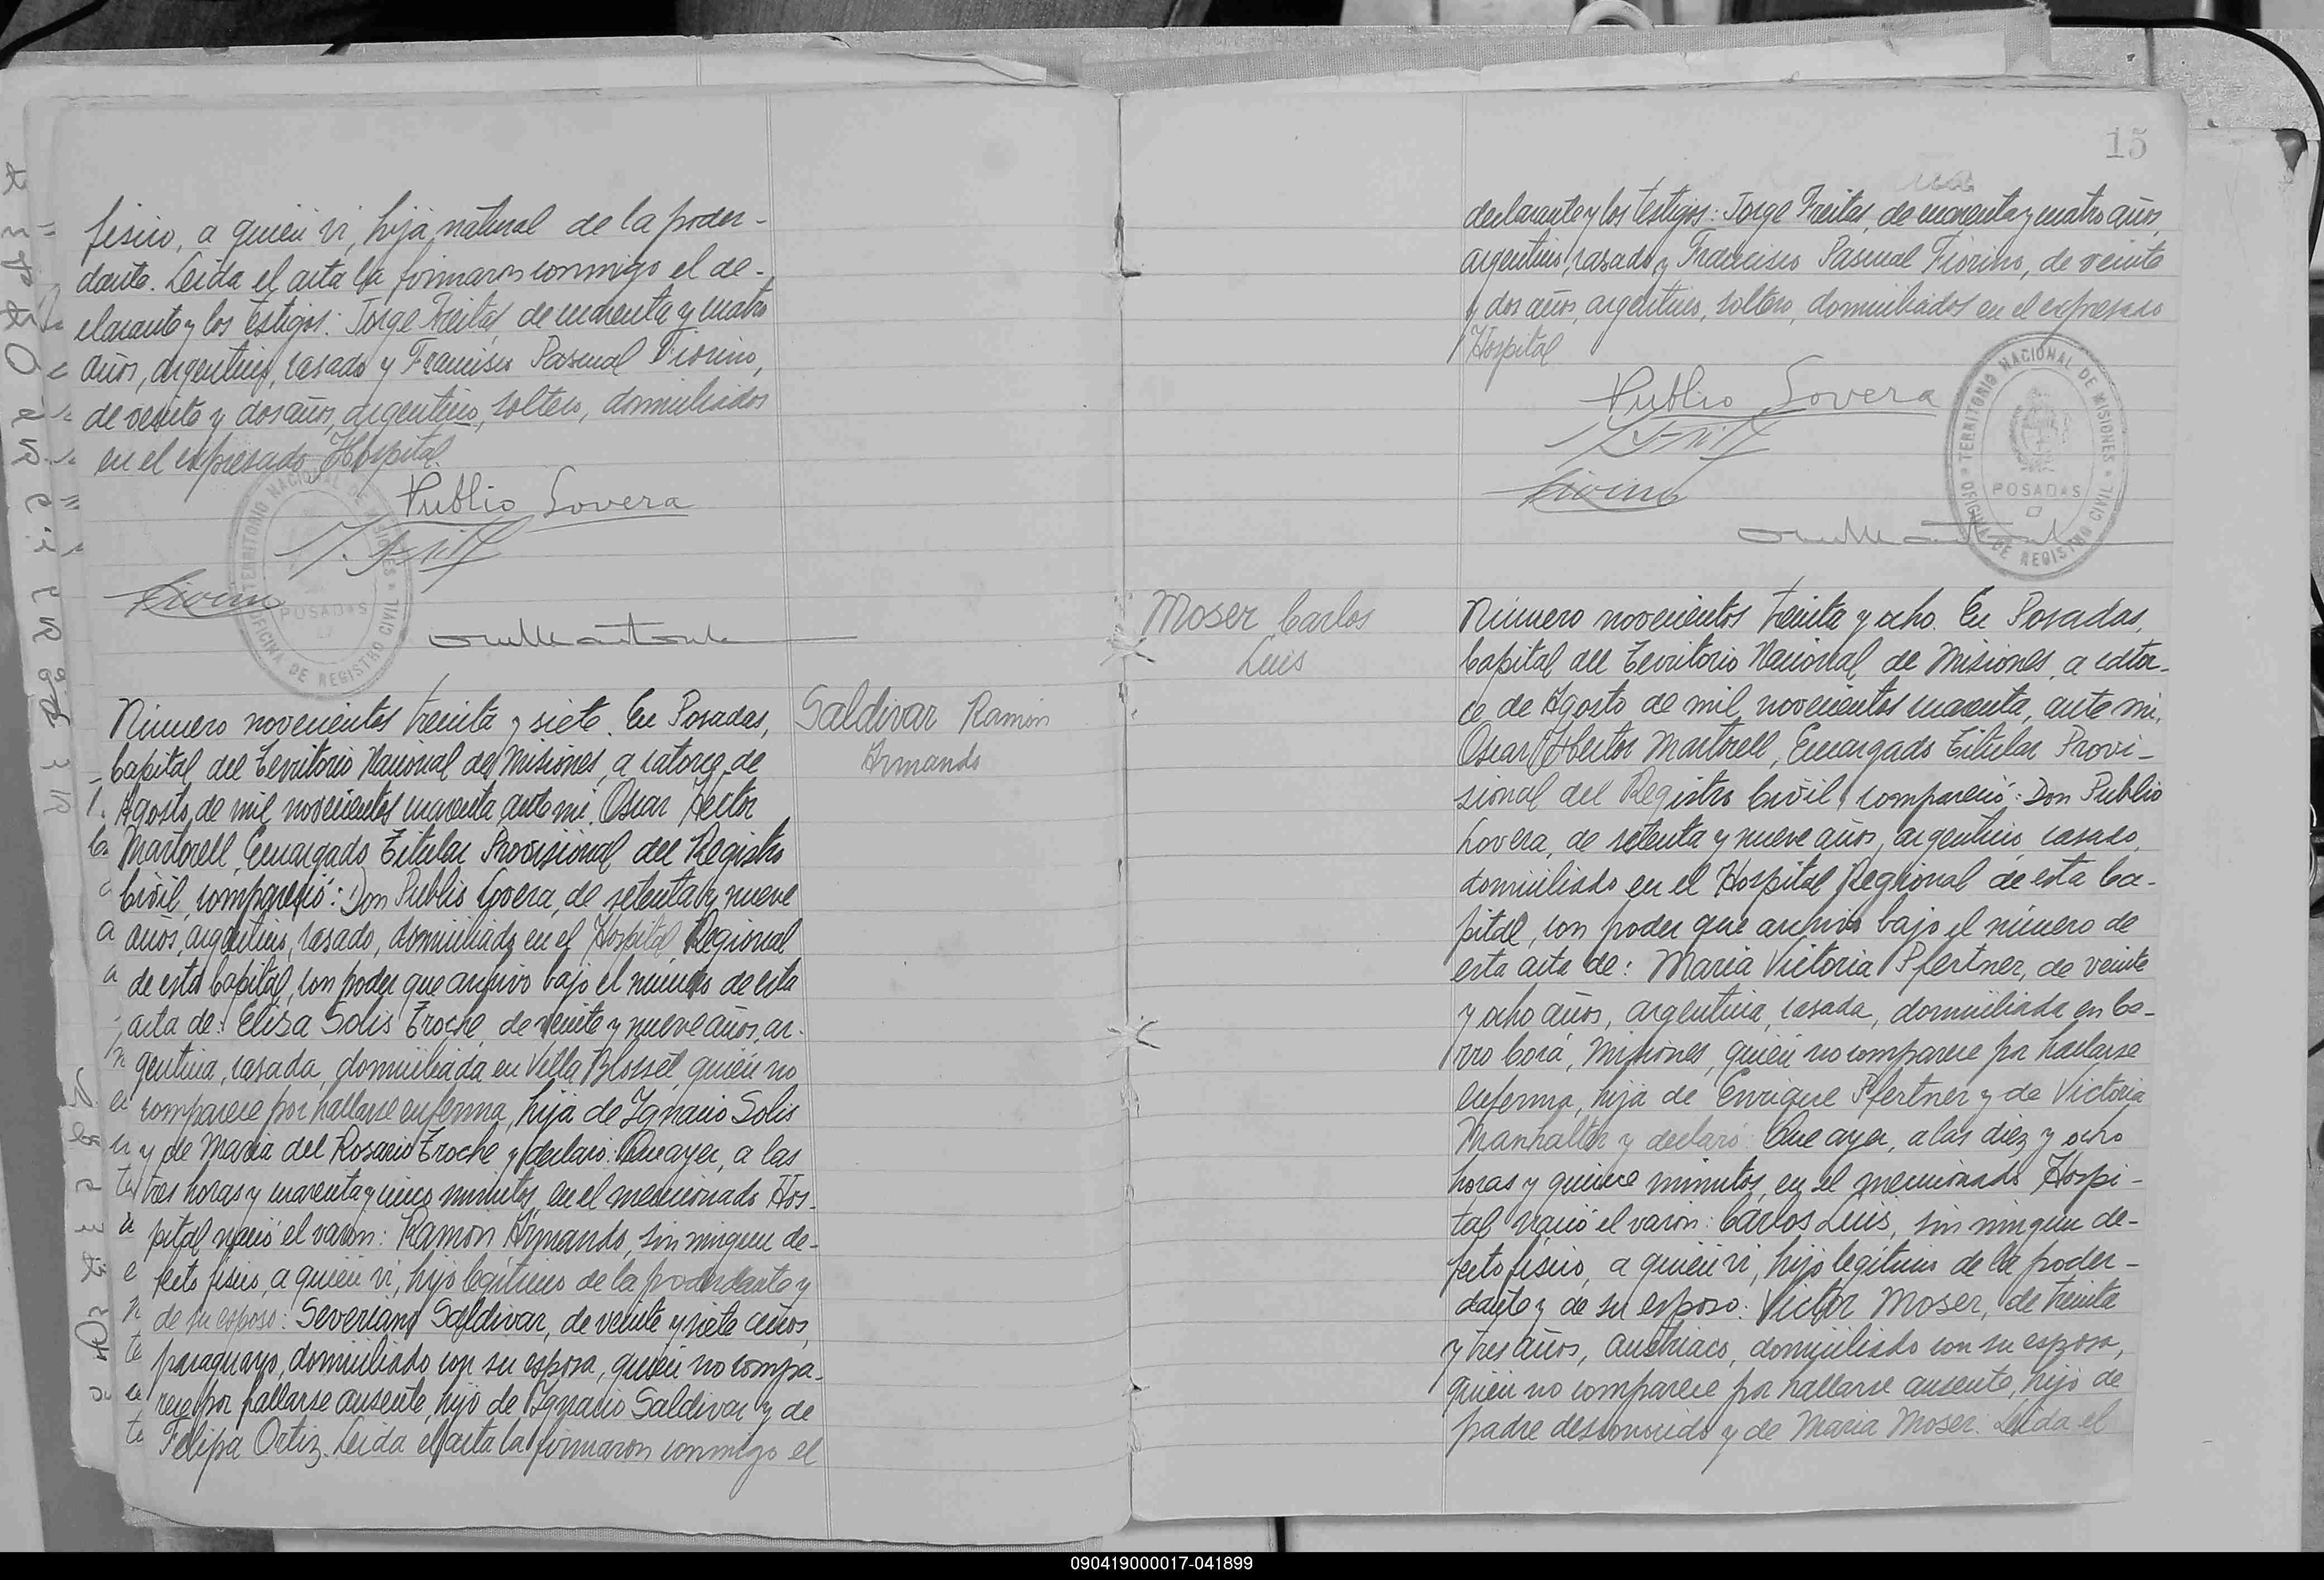 fisico, a quién vi, hija natural de la poder-
dante. Leida el acta la firmaron conmigo el de-
clarante y los testigos: Jorge Freitas, de cuarenta y cuatro
años, argentino, casado y Francisco Pascual Fiorino,
de veinte y dos años, argentino, soltero, domiciliados
en el expresado Hospital.
Publio Lovera
TERRITORIO NACIONAL DE MISIONES
POSADAS
OFICINA DE REGISTRO CIVIL
Número novecientos treinta y siete. En Posadas,
Capital del Territorio Nacional de Misiones, a catorce de
Agosto de mil novecientos cuarenta, ante mi, Oscar Hector
Martorell, Encargado Titular Provisional del Registro
Civil, compareció: Don Publio Lovera, de setenta y nueve
años, argentino, casado, domiciliado en el Hospital Regional
de esta Capital, con poder que archivo bajo el número de esta
acta de: Elisa Solis Troche, de veinte y nueve años, ar-
gentina, casada, domiciliada en Villa Blosset, quién no
comparece por hallarse enferma, hija de Ignacio Solis
y de Maria del Rosario Troche y declaró: Que ayer, a las
tres horas y cuarenta y cinco minutos, en el mencionado Hos-
pital nació el varon: Ramon Armando, sin ningun de-
fecto fisico, a quién vi, hijo legitimo de la poderdante y
de su esposo: Severiano Saldivar, de veinte y siete años,
paraguayo, domiciliado con su esposa, quién no compa-
rece por hallarse ausente, hijo de Ignacio Saldivar y de
Felipa Ortiz. Leida el acta la firmaron conmigo el
Saldivar Ramón
Armando
15
declarante y los testigos: Jorge Freitas, de cuarenta y cuatro años,
argentino, casado y Francisco Pascual Fiorino, de veinte
y dos años, argentino, soltero, domiciliados en el expresado
Hospital
Publio Lovera
TERRITORIO NACIONAL DE MISIONES
POSADAS
OFICINA DE REGISTRO CIVIL
Moser Carlos
Luis
Número novecientos treinta y ocho. En Posadas,
Capital del Territorio Nacional de Misiones, a cator-
ce de Agosto de mil novecientos cuarenta, ante mi,
Oscar Hector Martorell, Encargado Titular Provi-
sional del Registro Civil, compareció: Don Publio
Lovera, de setenta y nueve años, argentino, casado,
domiciliado en el Hospital Regional de esta Ca-
pital, con poder que archivo bajo el número de
esta acta de: Maria Victoria Pfertner, de veinte
y ocho años, argentina, casada, domiciliada en Ce-
rro Corá, Misiones, quién no comparece por hallarse
enferma, hija de Enrique Pfertner y de Victoria
Manhalter y declaró: Que ayer, a las diez y ocho
horas y quince minutos, en el mencionado Hospi-
tal nació el varón: Carlos Luis, sin ningun de-
fecto fisico, a quién vi, hijo legitimo de la poder-
dante y de su esposo: Victor Moser, de treinta
y tres años, austriaco, domiciliado con su esposa,
quién no comparece por hallarse ausente, hijo de
padre desconocido y de Maria Moser. Leida el
090419000017-041899